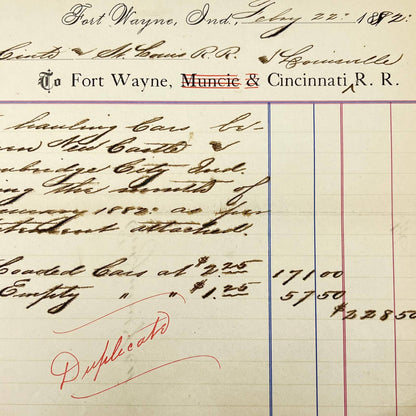 Fort Wayne, Ind, Feby 22d 1882.
Cinti & St Louis R.R. & Louisville
To Fort Wayne, Muncie & Cincinnati, R. R.
hauling Cars be-
een New Castle &
mbridge City Ind.
ing the month of
nuary 1882 as per
tement attached.
Loaded Cars at $2.25 171 00
Empty " " $1.25 57 50
$228 50
Duplicate